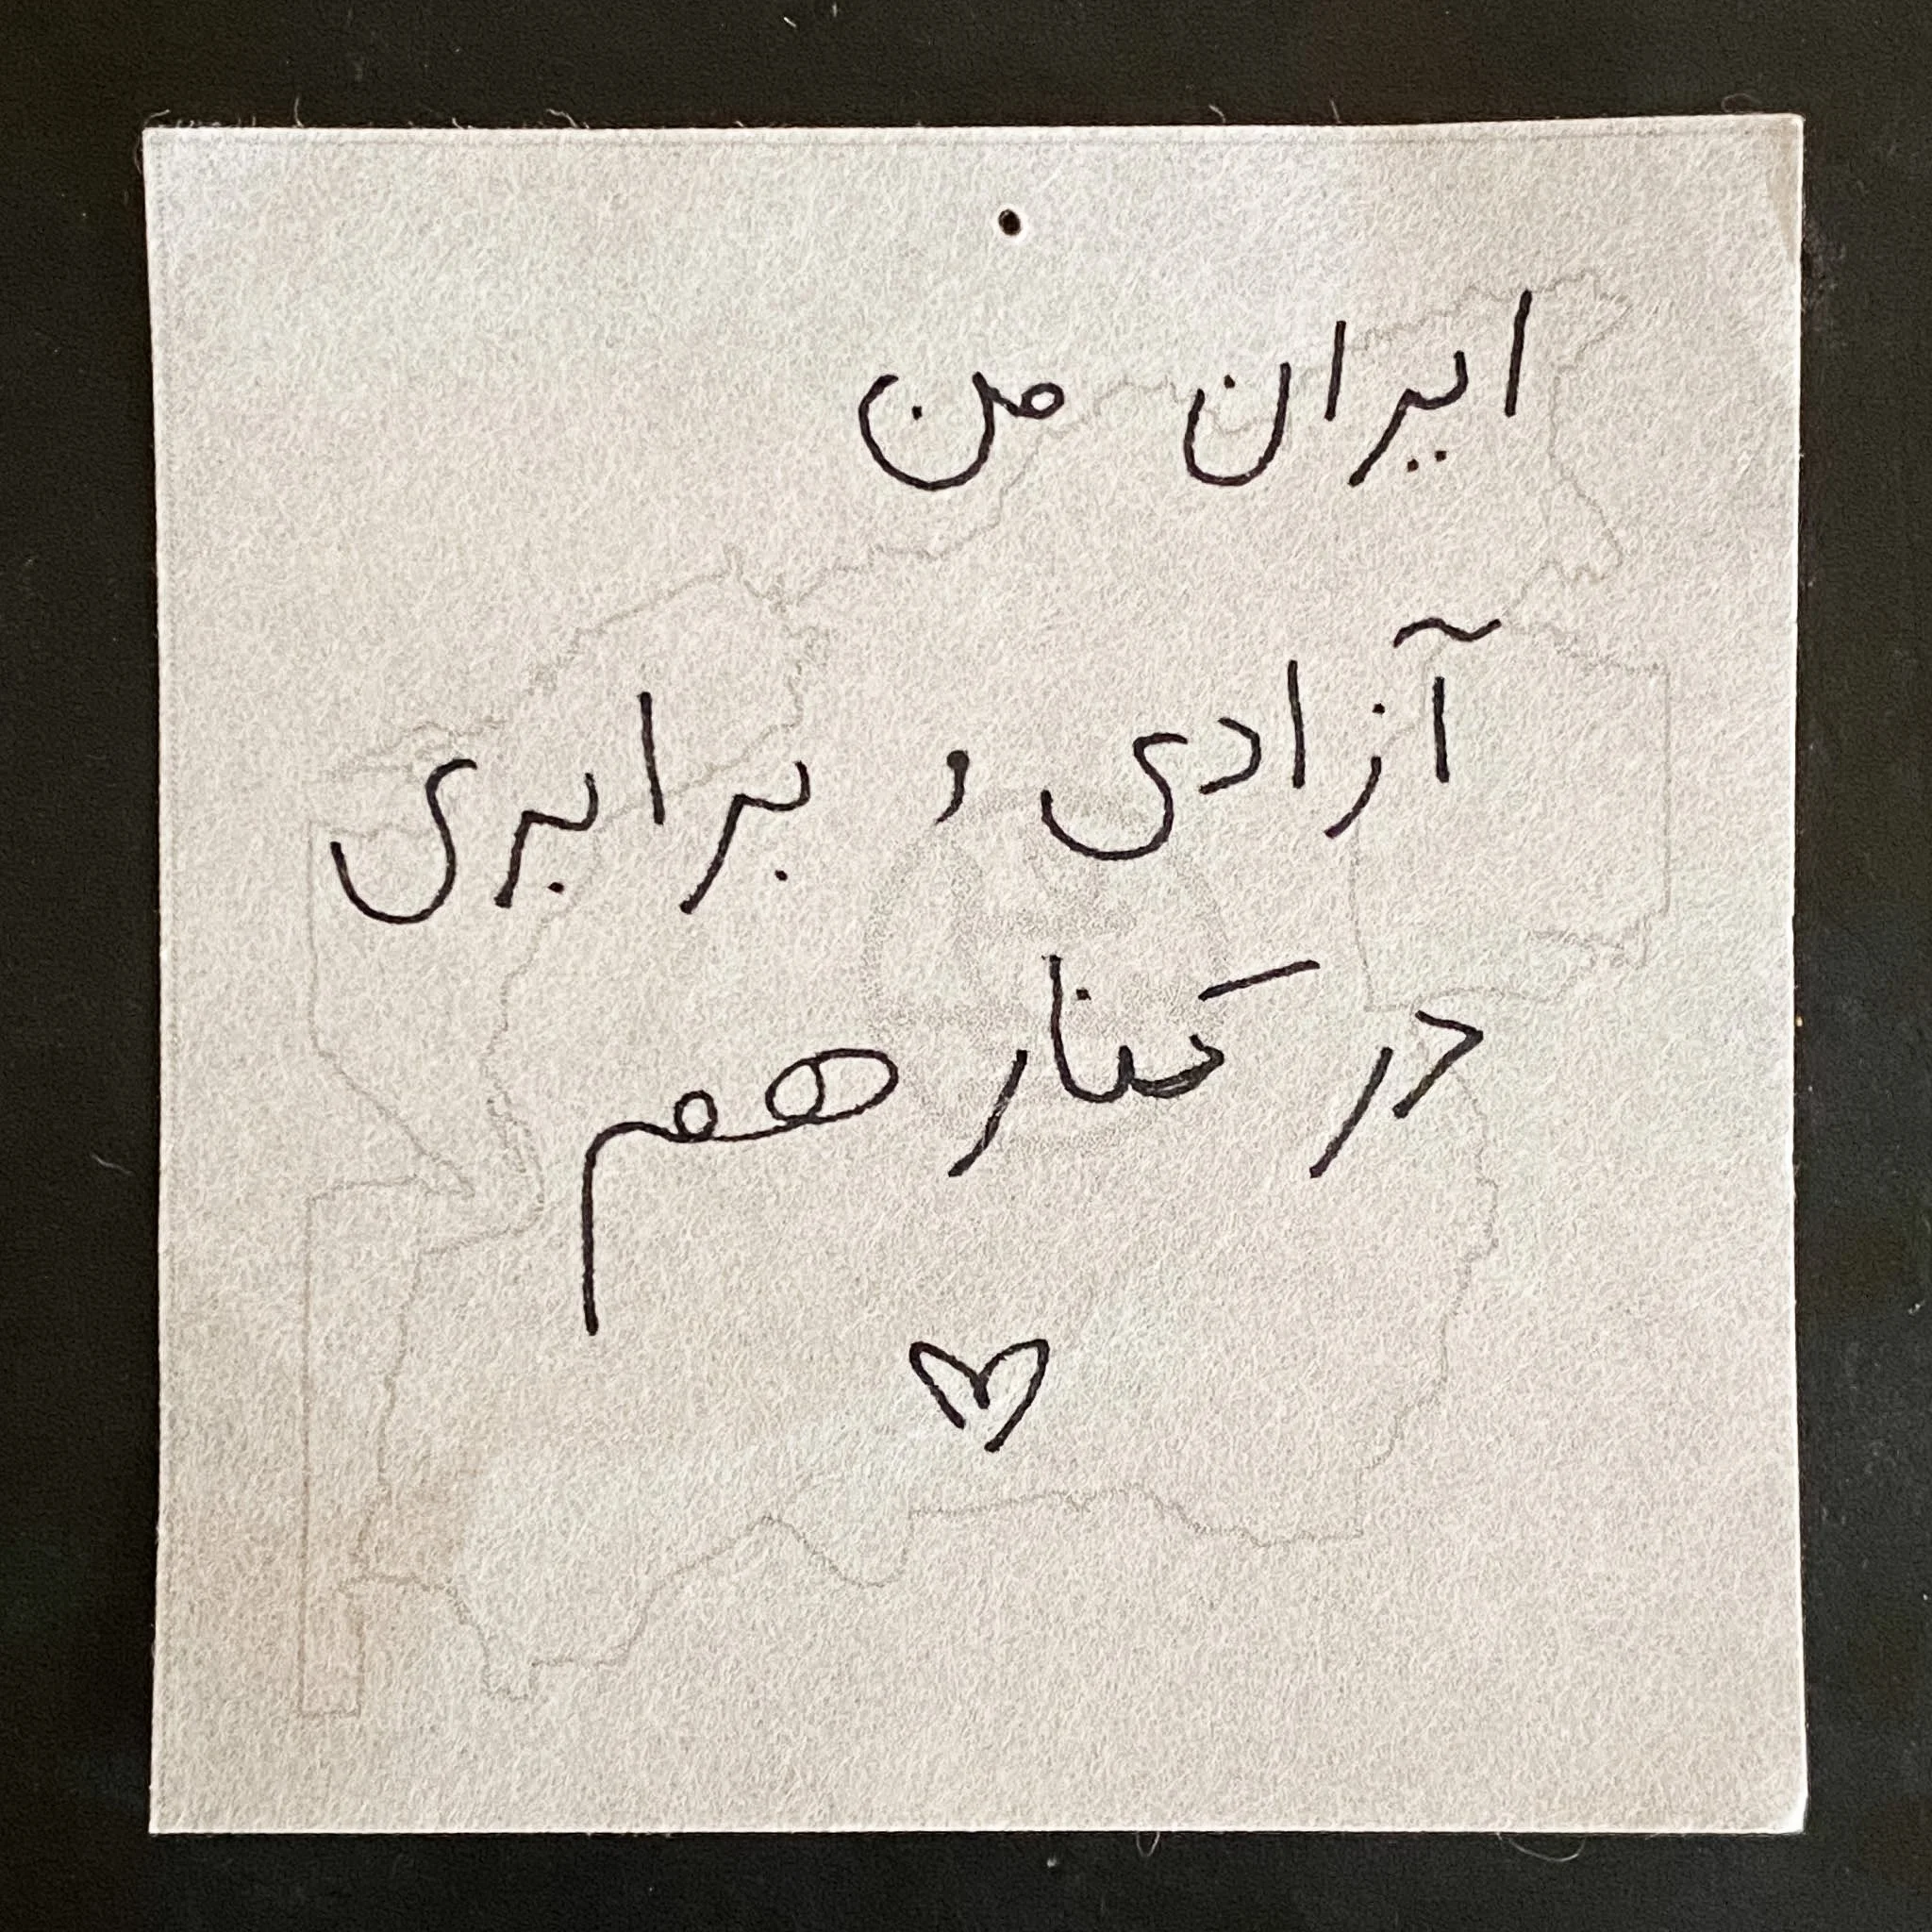 ایران من
آزادی و برابری
در کنار هم